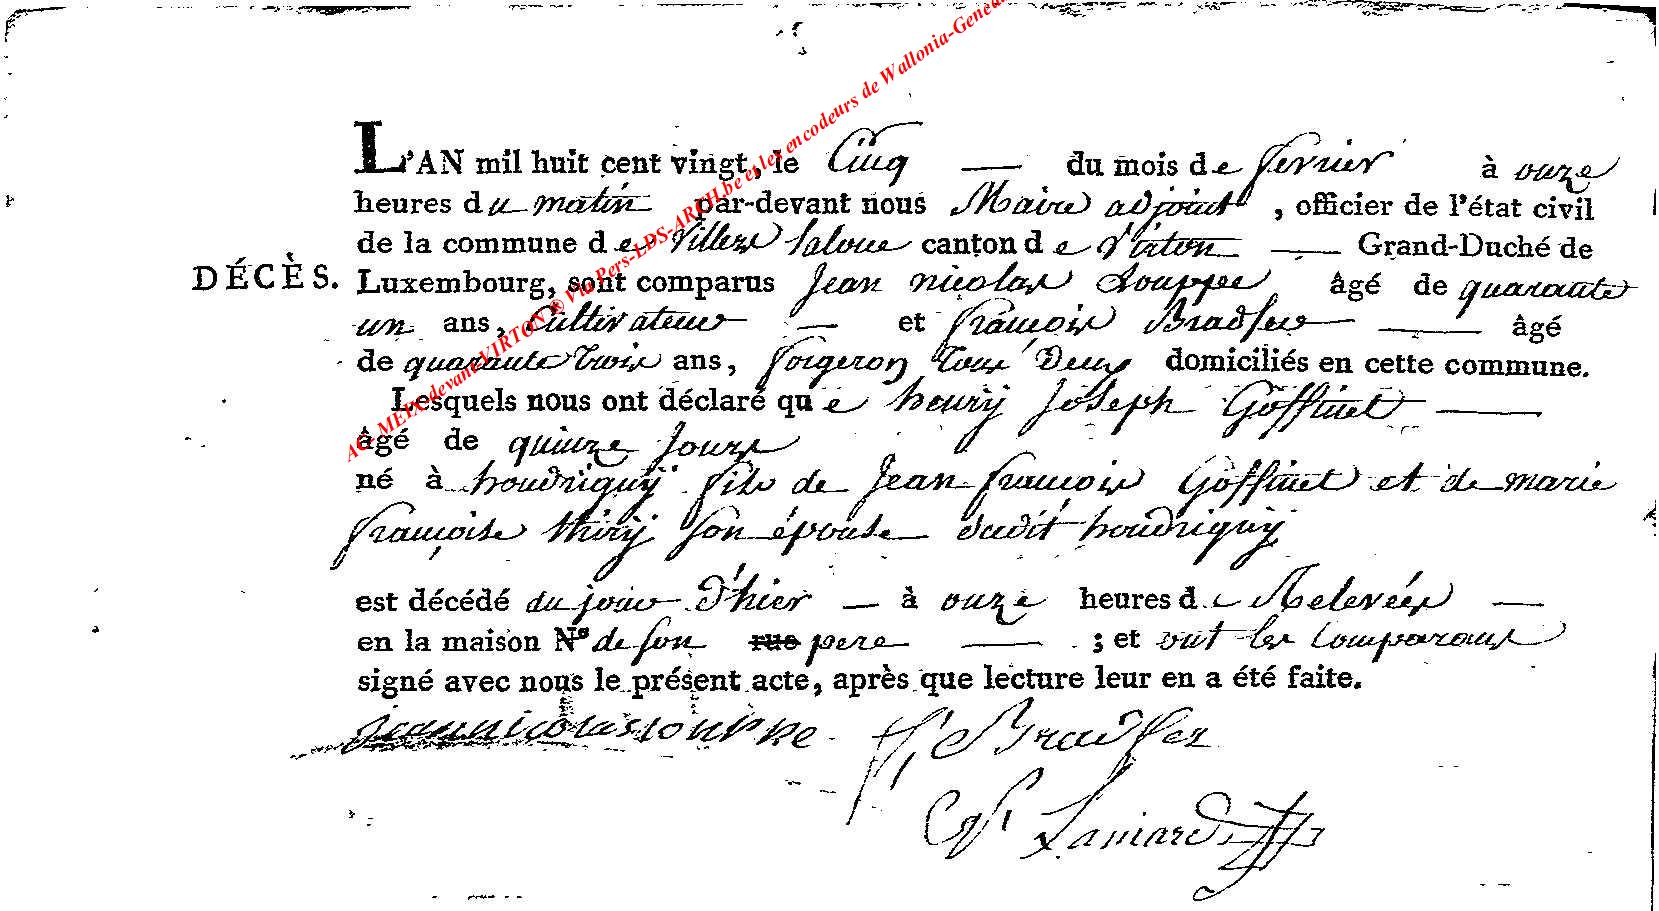 L'AN mil huit cent vingt, le Cinq du mois de fevrier à onze
heures du matin par-devant nous Maire adjoint, officier de l'état civil
de la commune de Villers laloue canton de Virton Grand-Duché de
DÉCÈS. Luxembourg, sont comparus Jean nicolas Louppe âgé de quarante
un ans, Cultivateur et françois Bradfer âgé
de quarante trois ans, forgeron tous Deux domiciliés en cette commune.
Lesquels nous ont déclaré que henry Joseph Goffinet
âgé de quinze jours
né à houdrigny fils de Jean françois Goffinet et de marie
françoise thiry son épouse dudit houdrigny
est décédé du jour d'hier à onze heures de Relevées
en la maison N° de son rue pere ; et ont les Comparans
signé avec nous le présent acte, après que lecture leur en a été faite.
jean nicolas louppe f, Bradfer
Lamard
AG MEIX devant VIRTON ® Via Pers-LDS-ARCH.be et les encodeurs de Wallonia-Genea